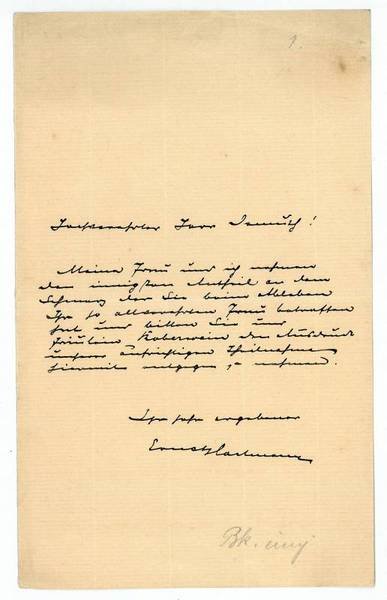 1.
Hochverehrter Herr Demuth!
Meine Frau und ich nehmen
den innigsten Antheil an dem
Schmerz der Sie beim Ableben
Ihr so allverehrten Frau betroffen
hat und bitten Sie und
Fräulein Koberwein den Ausdruck
unserer aufrichtigen Theilnahme
hiermit entgegen zu nehmen.
Ihr sehr ergebener
Ernst Hartmann